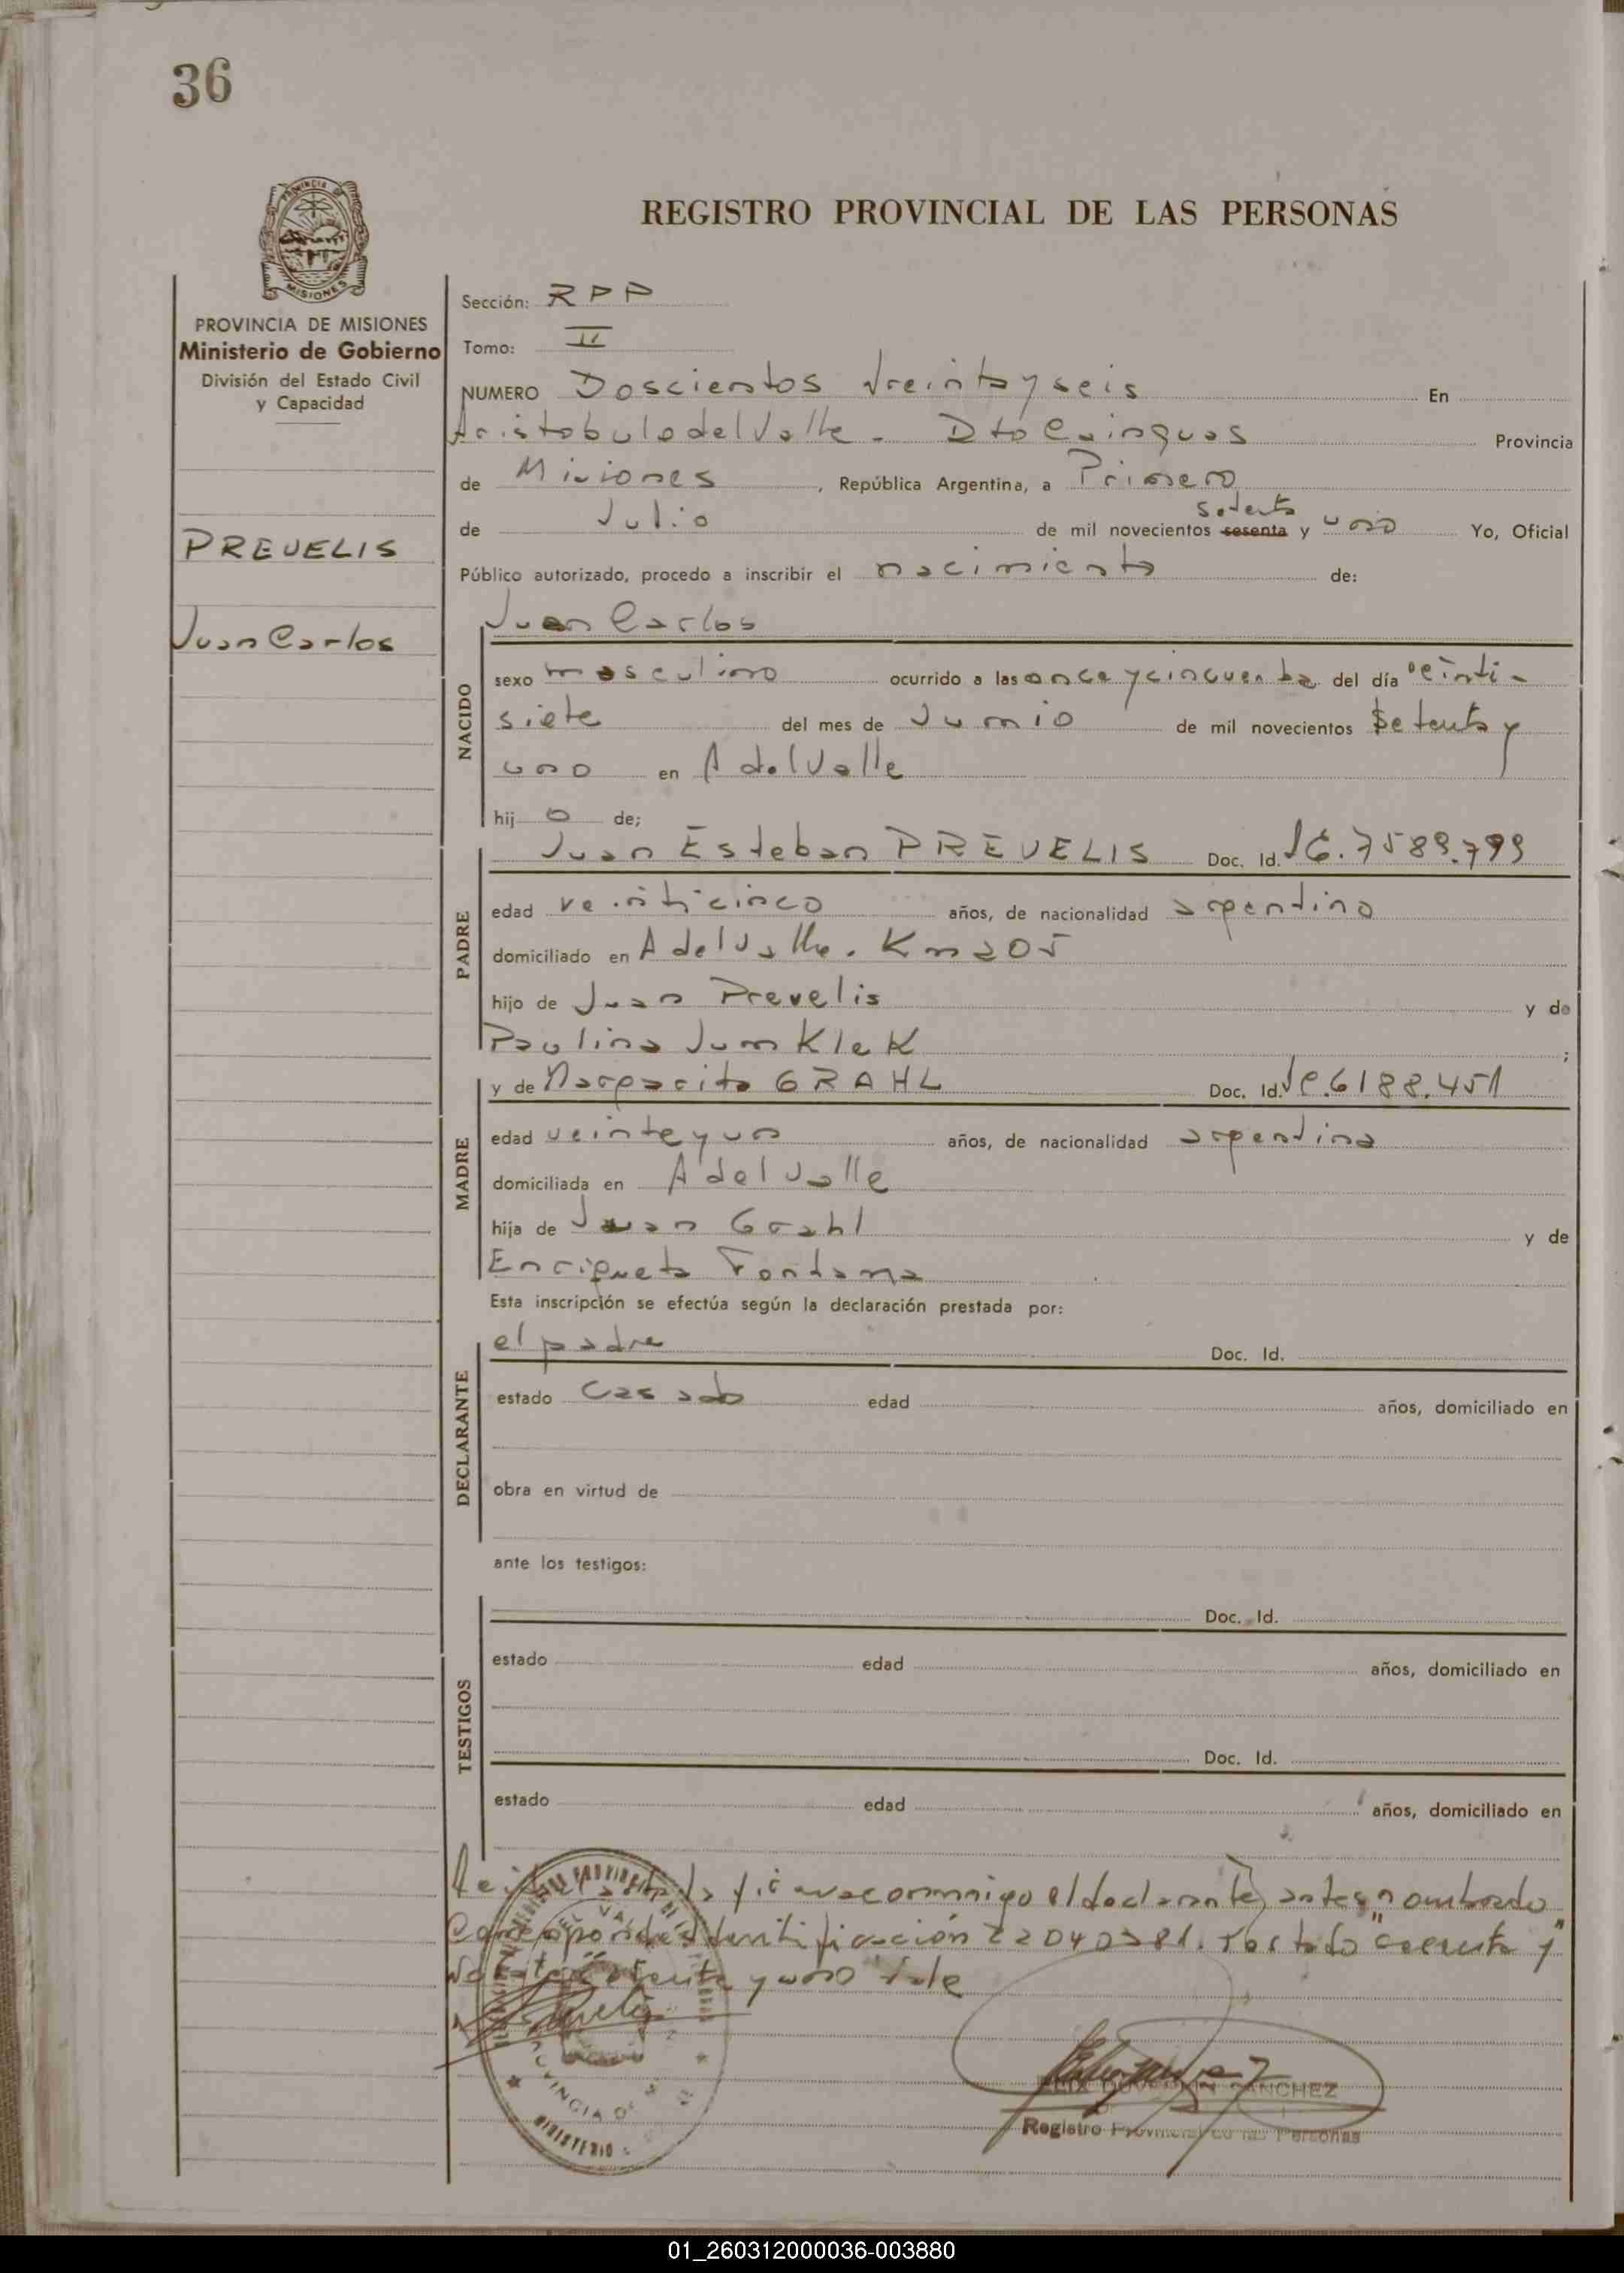 36
PROVINCIA DE MISIONES
Ministerio de Gobierno
División del Estado Civil
y Capacidad
PREVELIS
Juan Carlos
REGISTRO PROVINCIAL DE LAS PERSONAS
Sección: RPP
Tomo: II
NUMERO Doscientos treintayseis En
Aristobulo del Valle. Dto Cainguas Provincia
de Misiones, República Argentina, a Primero
setenta
de Julio de mil novecientos sesenta y uno Yo, Oficial
Público autorizado, procedo a inscribir el nacimiento de:
Juan Carlos
NACIDO
sexo masculino ocurrido a las once y cincuenta del día veinti-
siete del mes de Junio de mil novecientos setenta y
uno en A del Valle
hijo de;
PADRE
Juan Esteban PREVELIS Doc. Id. 7589.799
edad veinticinco años, de nacionalidad argentino
domiciliado en A del Valle. Km 205
hijo de Juan Prevelis y de
Paulina Jum Klek ;
MADRE
y de Margarita GRAHL Doc. Id. 6188.451
edad veinteyun años, de nacionalidad argentina
domiciliada en A del Valle
hija de Juan Grahl y de
Enriqueta Fontana
Esta inscripción se efectúa según la declaración prestada por:
DECLARANTE
el padre Doc. Id.
estado casado edad años, domiciliado en
obra en virtud de
ante los testigos:
TESTIGOS
Doc. Id.
estado edad años, domiciliado en
Doc. Id.
estado edad años, domiciliado en
conmigo el declarante antes nombrado
Corresponde identificación 22040381. Testado
setenta y uno vale
SANCHEZ
Registro Provincial de las Personas
01_260312000036-003880